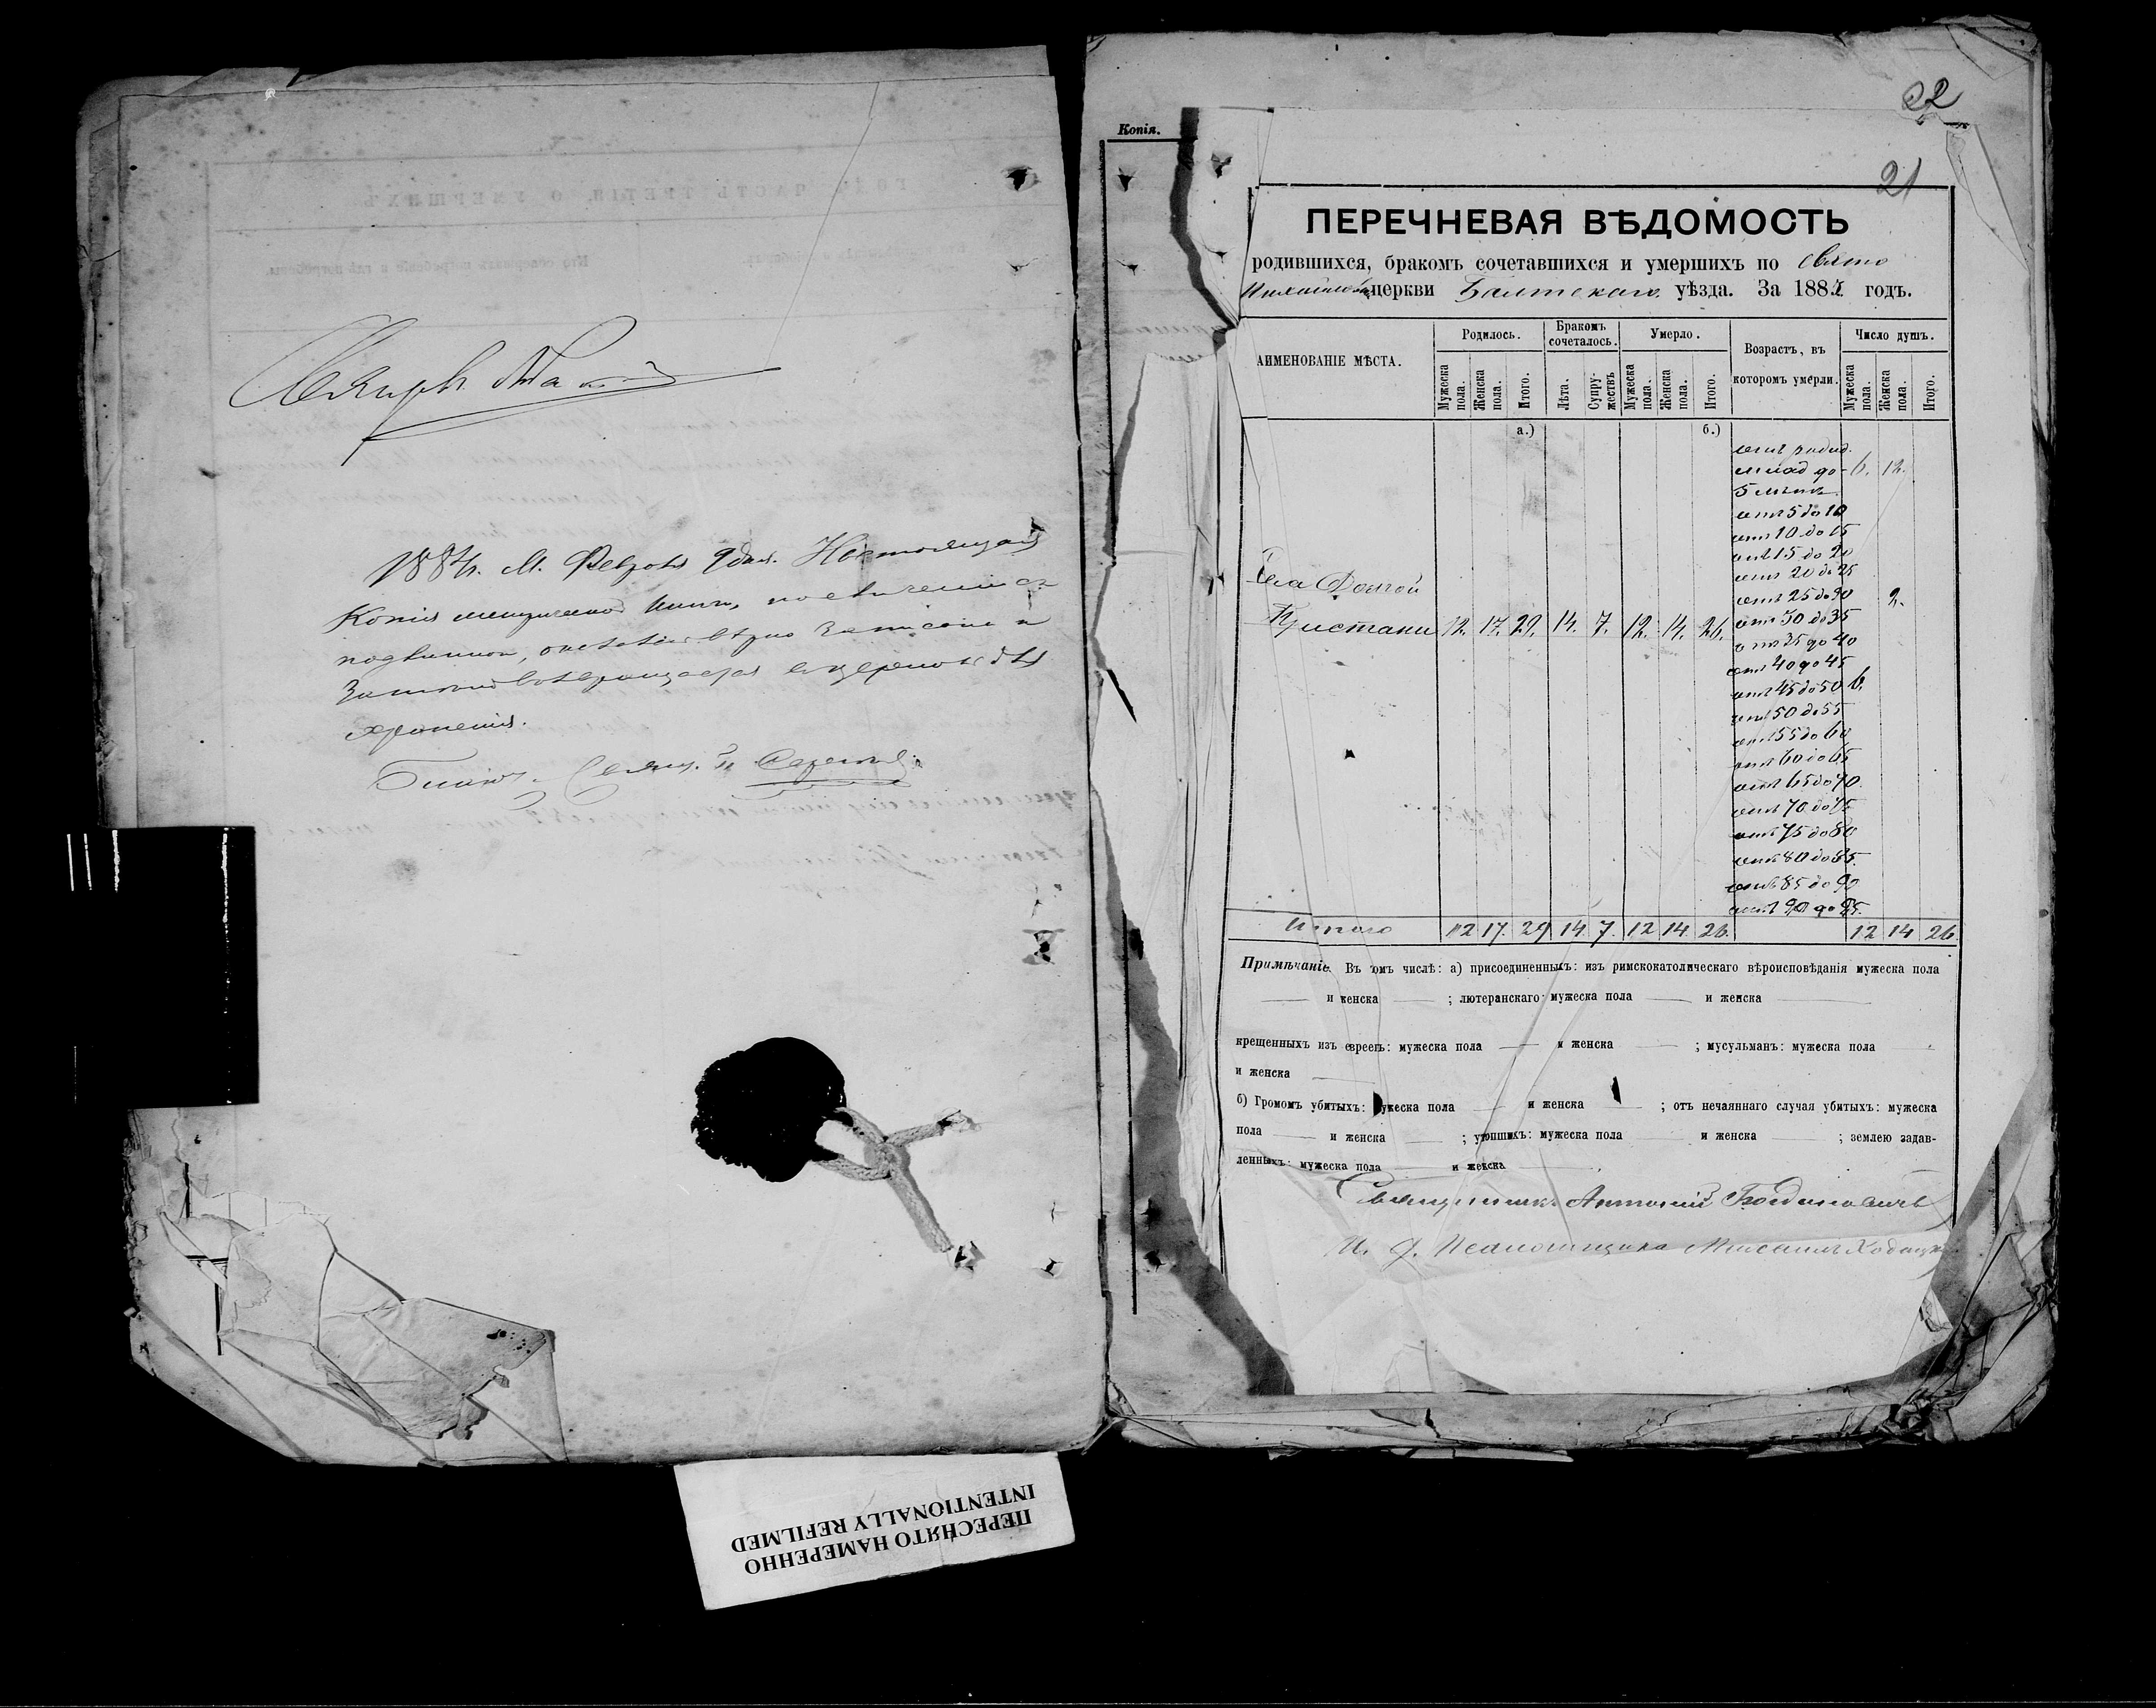 1884г. М. Февраля 9 дня. Настоящая
Копія метрической книги, по сличеніи съ
подлинной, оказалась вѣрно записана и
хранения.
Копія.
22
21
ПЕРЕЧНЕВАЯ ВѢДОМОСТЬ
родившихся, бракомъ сочетавшихся и умершихъ по Свято
Михайловской церкви Балтскаго уѣзда. За 188 годъ.
АИМЕНОВАНІЕ МѢСТА.
Родилось.
Бракомъ сочеталось.
Умерло.
Возрастъ, въ которомъ умерли.
Число душъ.
Мужеска пола. Женска пола. Итого. Лѣта. Супружествъ Мужеска пола. Женска пола. Итого. Мужеска пола. Женска пола. Итого.
а.) б.)
6. 12.
5 лѣтъ
отъ 5 до 10
отъ 10 до 15
отъ 15 до 20
отъ 20 до 25
отъ 25 до 30 2.
Села Долгой
Пристани 12. 17. 29. 14. 7. 12. 14. 26.
отъ 30 до 35
отъ 35 до 40
отъ 40 до 45
отъ 45 до 50 6.
отъ 50 до 55
отъ 55 до 60
отъ 60 до 65
отъ 65 до 70
отъ 70 до 75
отъ 75 до 80
отъ 80 до 85.
отъ 85 до 90
отъ 90 до 95.
Итого 12 17. 29 14. 7. 12 14. 26. 12 14 26.
Примѣчаніе. Въ томъ числѣ: а) присоединенныхъ: изъ римскокатолическаго вѣроисповѣданія мужеска пола
и женска ; лютеранскаго: мужеска пола и женска
крещенныхъ изъ евреевъ: мужеска пола и женска ; мусульманъ: мужеска пола
и женска
б) Громомъ убитыхъ: мужеска пола и женска ; отъ нечаяннаго случая убитыхъ: мужеска
пола и женска ; утопшихъ: мужеска пола и женска ; землею задав-
ленныхъ: мужеска пола и женска
Священникъ Антоній Богдановичъ
И. д. Псаломщика
ПЕРЕСНЯТО НАМЕРЕННО
INTENTIONALLY REFILMED